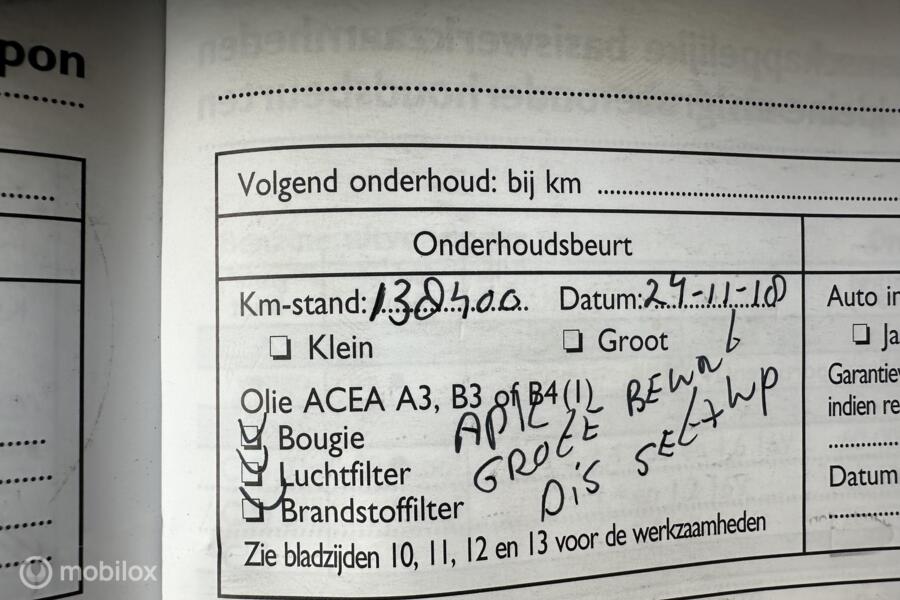 pon
Volgend onderhoud: bij km
Onderhoudsbeurt
Km-stand: 138400 Datum: 24-11-10
Klein Groot
Olie ACEA A3, B3 of B4(1)
Bougie APK
Luchtfilter GROTE
Brandstoffilter DiS SET + WP
Zie bladzijden 10, 11, 12 en 13 voor de werkzaamheden
Auto in
Ja
Garantiev
indien re
Datum
mobilox